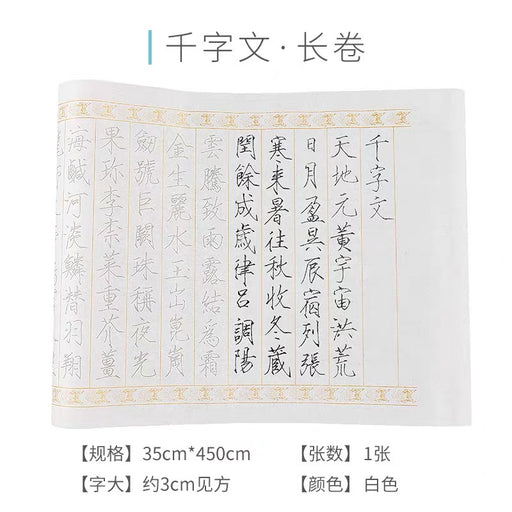 千字文·长卷
千字文
天地元黃宇宙洪荒
日月盈昃辰宿列張
寒来暑往秋收冬藏
閏餘成歲律吕調陽
雲騰致雨露結爲霜
金生麗水玉出崑岡
劍號巨闕珠稱夜光
果珍李柰菜重芥薑
海鹹河淡鱗潛羽翔
【规格】35cm*450cm
【张数】1张
【字大】约3cm见方
【颜色】白色